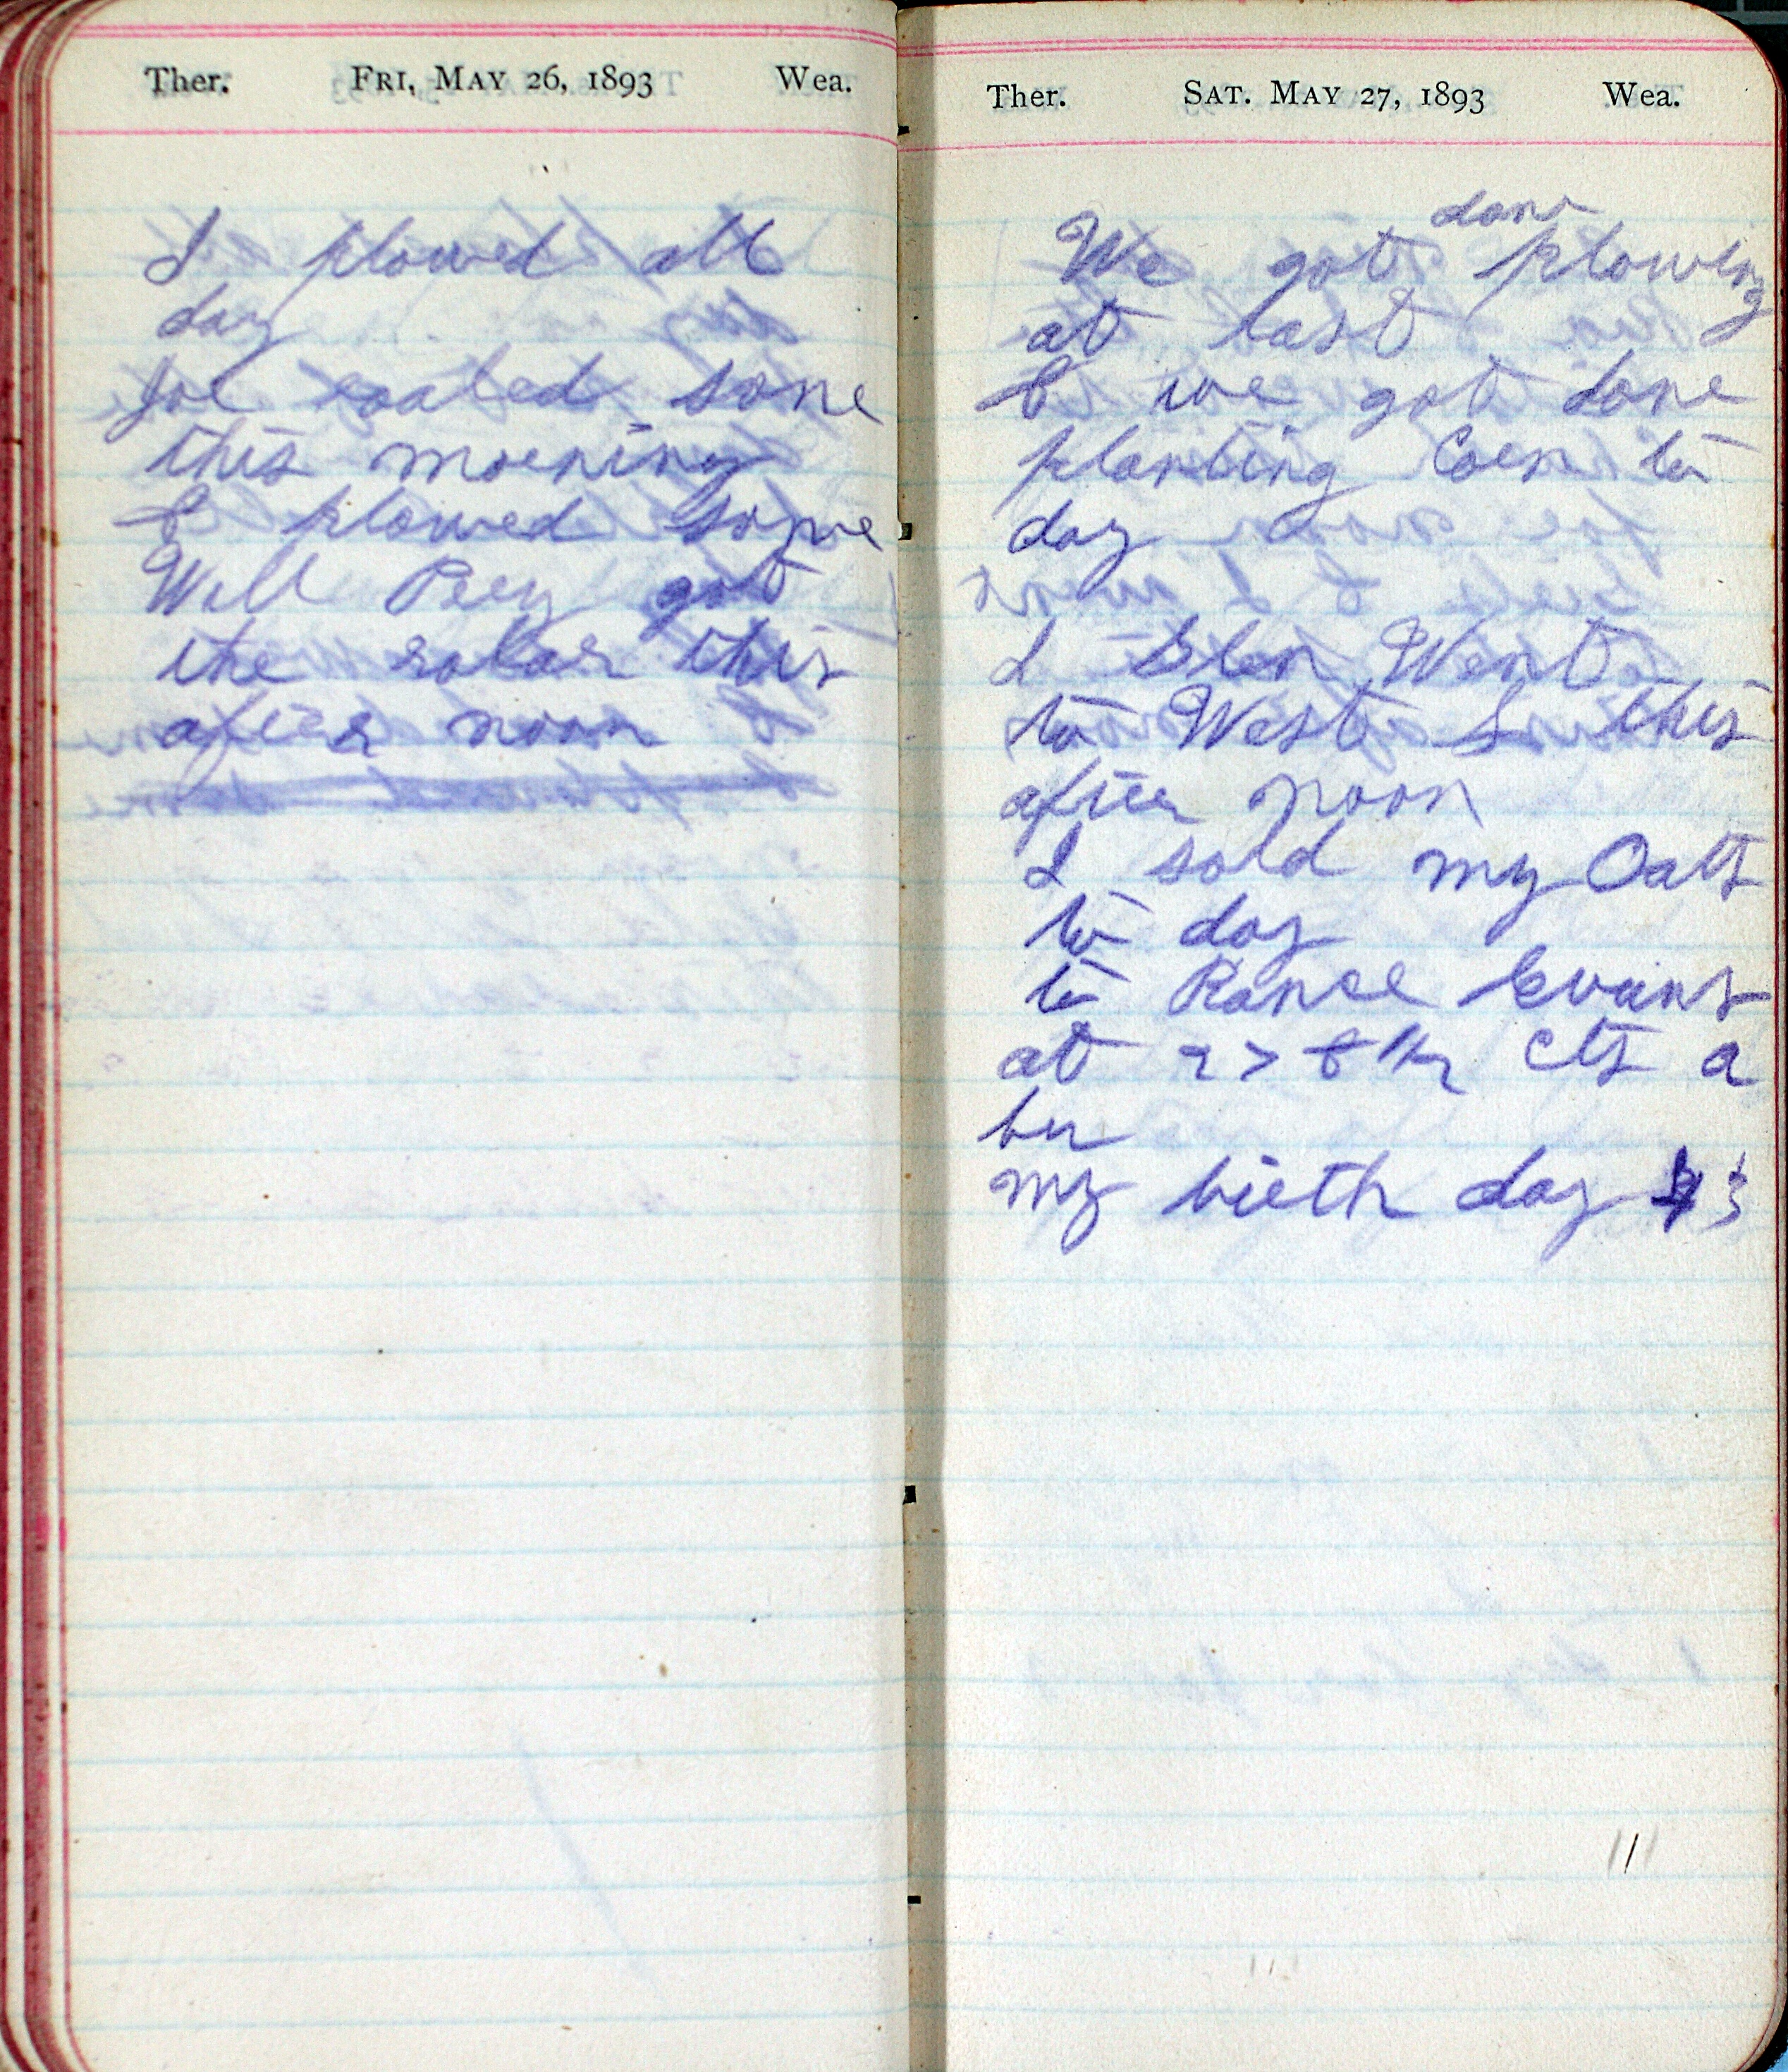 Ther. FRI, MAY 26, 1893 Wea.
I plowed all
day
Joe roaled some
this morning
& plowed some
Will Bey got
the rolar this
after noon
Ther. SAT. MAY 27, 1893 Wea.
done
We got plowing
at last
& we got done
planting Corn to
day
I Glen Went
to West L this
after noon
I sold my Oats
to day
to Rance Evans
at cts a
bu
my birth day